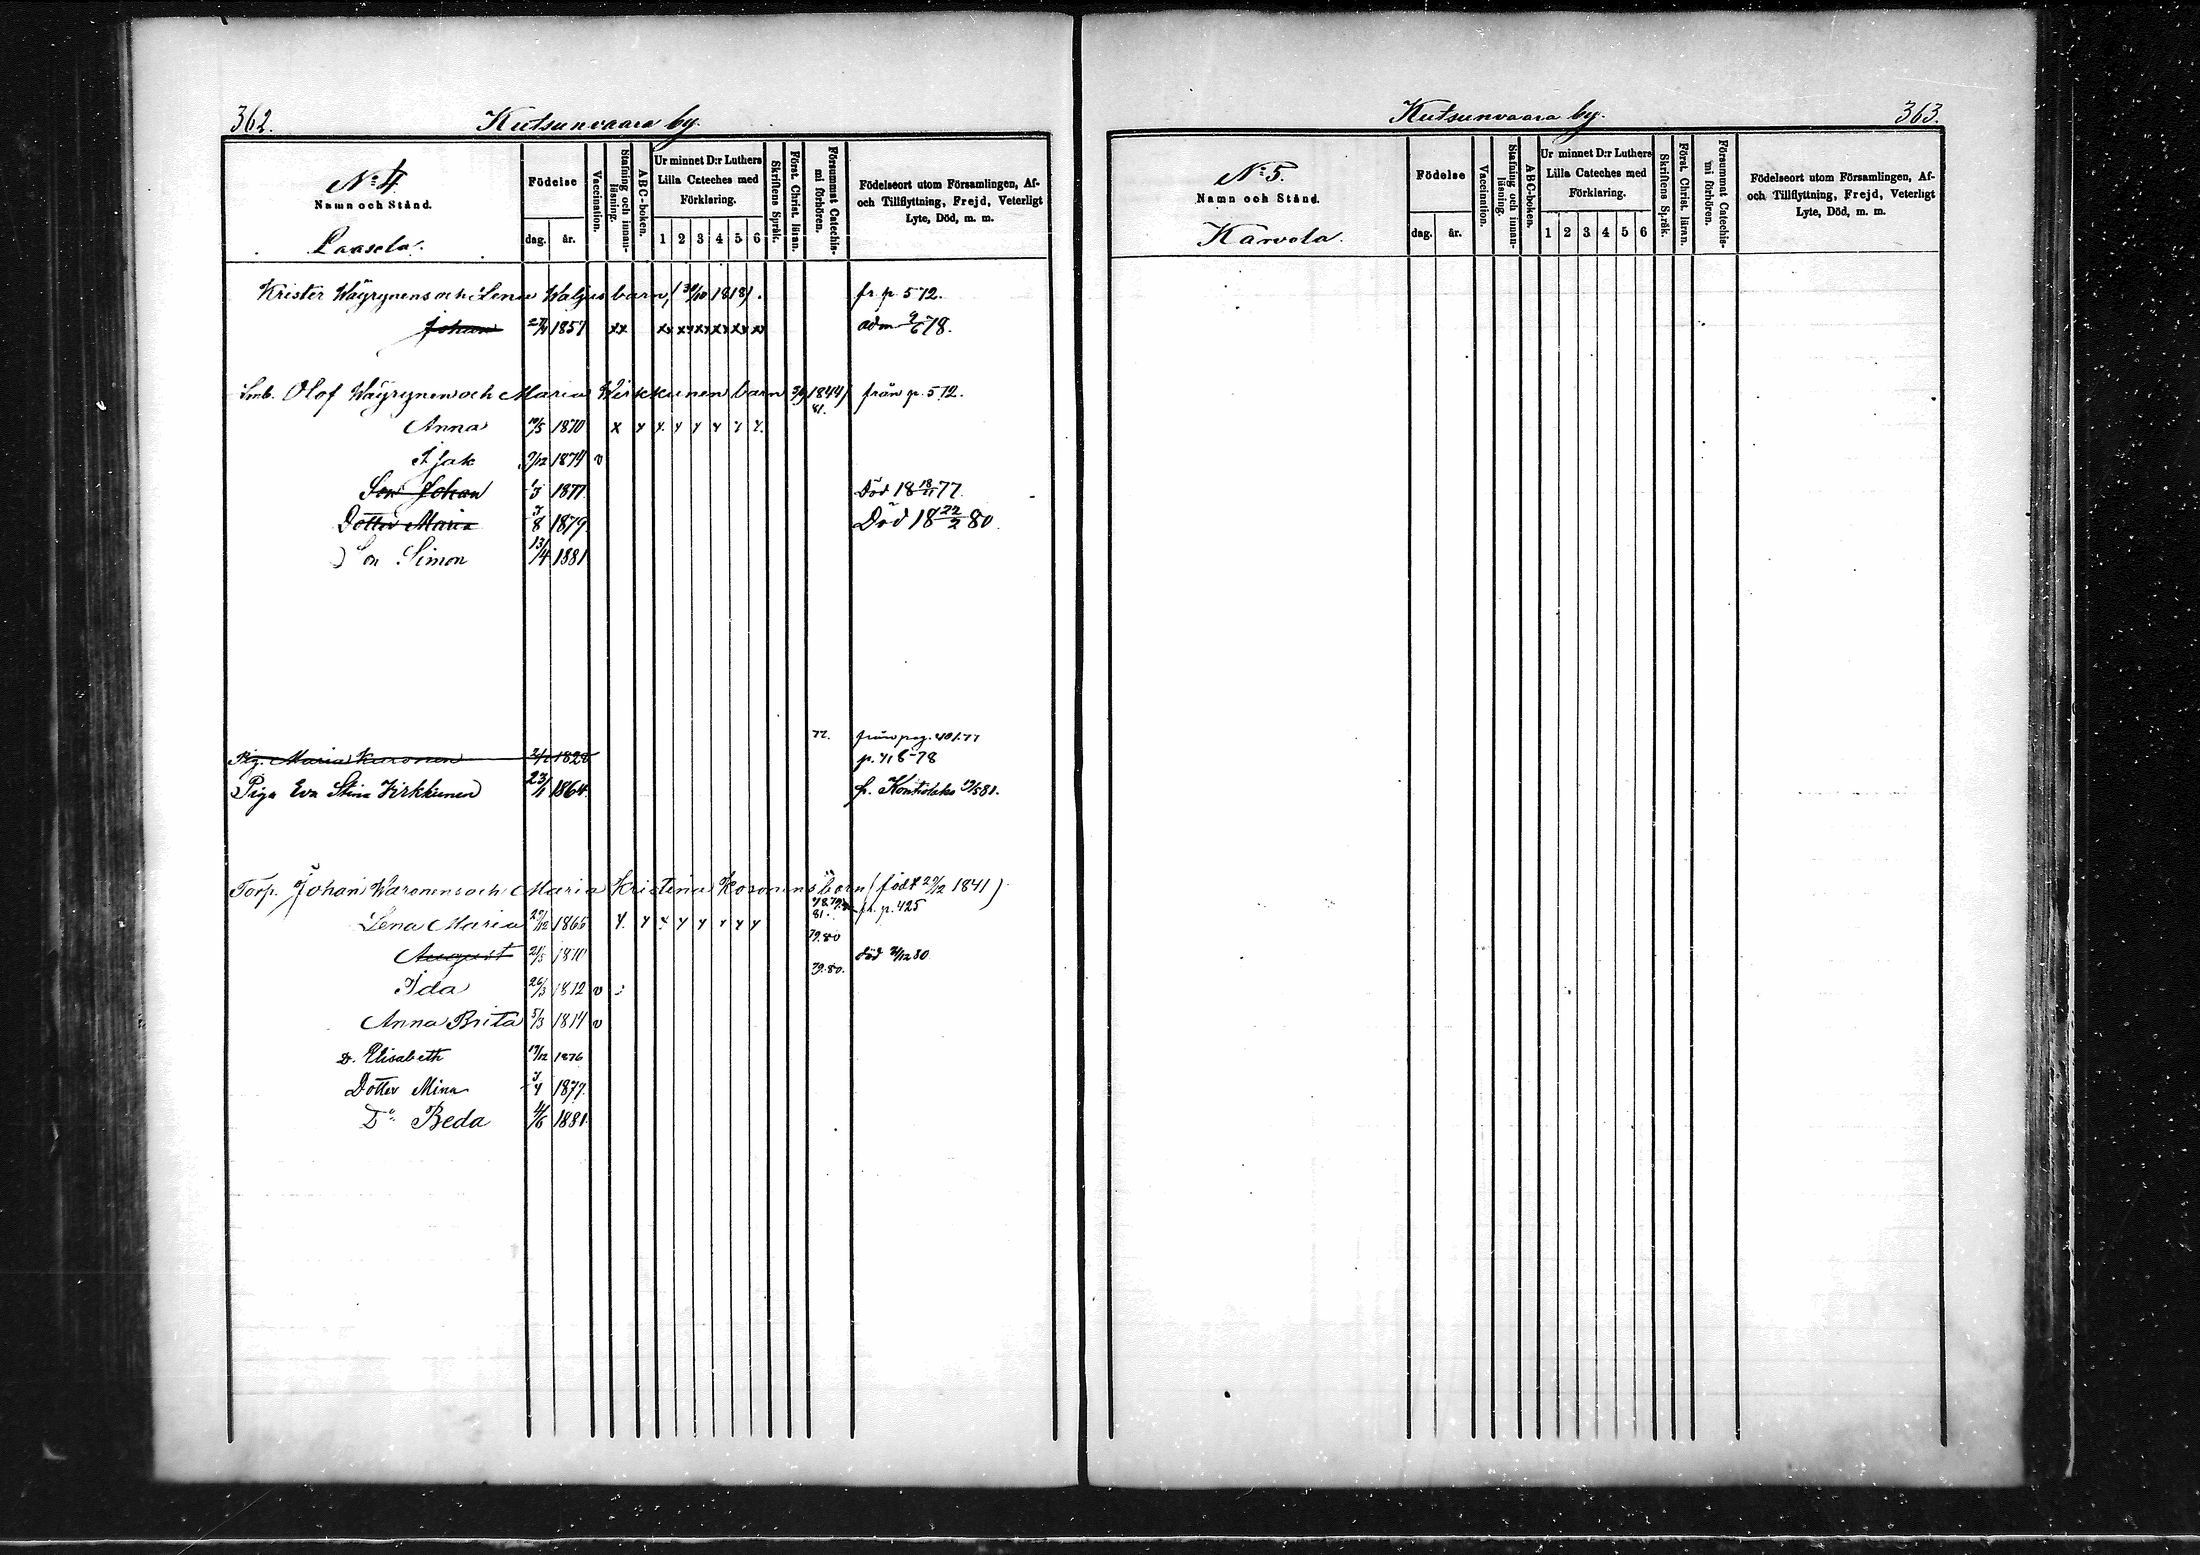 362. Kutsunvaara by.
No 4.
Namn och Stånd.
Laasela.
Födelse
dag. år.
Vaccination.
Stafning och innan-läsning.
ABC-boken.
Ur minnet D:r Luthers Lilla Cateches med Förklaring.
1 2 3 4 5 6
Skriftens Språk.
Först. Christ. läran.
Försummat Catechis-mi förhören.
Födelseort utom Församlingen, Af- och Tillflyttning, Frejd, Veterligt Lyte, Död, m. m.
Krister Wäyrynens och Lena Waljus barn, (30/10 1818). fr. p. 572.
Johan 1857 xx x x x x x x adm 9/6 78.
Olof Wäyrynen och Maria Kirkkunen barn 1844) från p. 572.
81.
Anna 10/5 1870 x x x x x x x x
Isak 9/12 1874 v
Son Johan 1/3 1877 Död 18 18/11 77.
Dotter Maria 3/8 1879 Död 18 22/2 80.
Son Simon 13/4 1881
77. från pag. 401.77
Pig. Maria Karonen 1828 p. 418-78
Piga Eva Stina Kirkkunen 23/1 1864 fr. Kontiolaks 81.
Torp. Johan Waronens och Maria Kristina Kosonens barn (född 29/12 1841)
81. fr. p. 425
Lena Maria 29/12 1865 x x x x x x x x
79.80
August 21/5 1870 död 80
79.80.
Ida 26/3 1872 v
Anna Brita 5/3 1874 v
D. Elisabeth 17/12 1876
Dotter Mina 3/4 1877.
Do Beda 11/6 1881
Kutsunvaara by. 363.
No 5.
Namn och Stånd.
Karvola.
Födelse
dag. år.
Vaccination.
Stafning och innan-läsning.
ABC-boken.
Ur minnet D:r Luthers Lilla Cateches med Förklaring.
1 2 3 4 5 6
Skriftens Språk.
Först. Christ. läran.
Försummat Catechis-mi förhören.
Födelseort utom Församlingen, Af- och Tillflyttning, Frejd, Veterligt Lyte, Död, m. m.